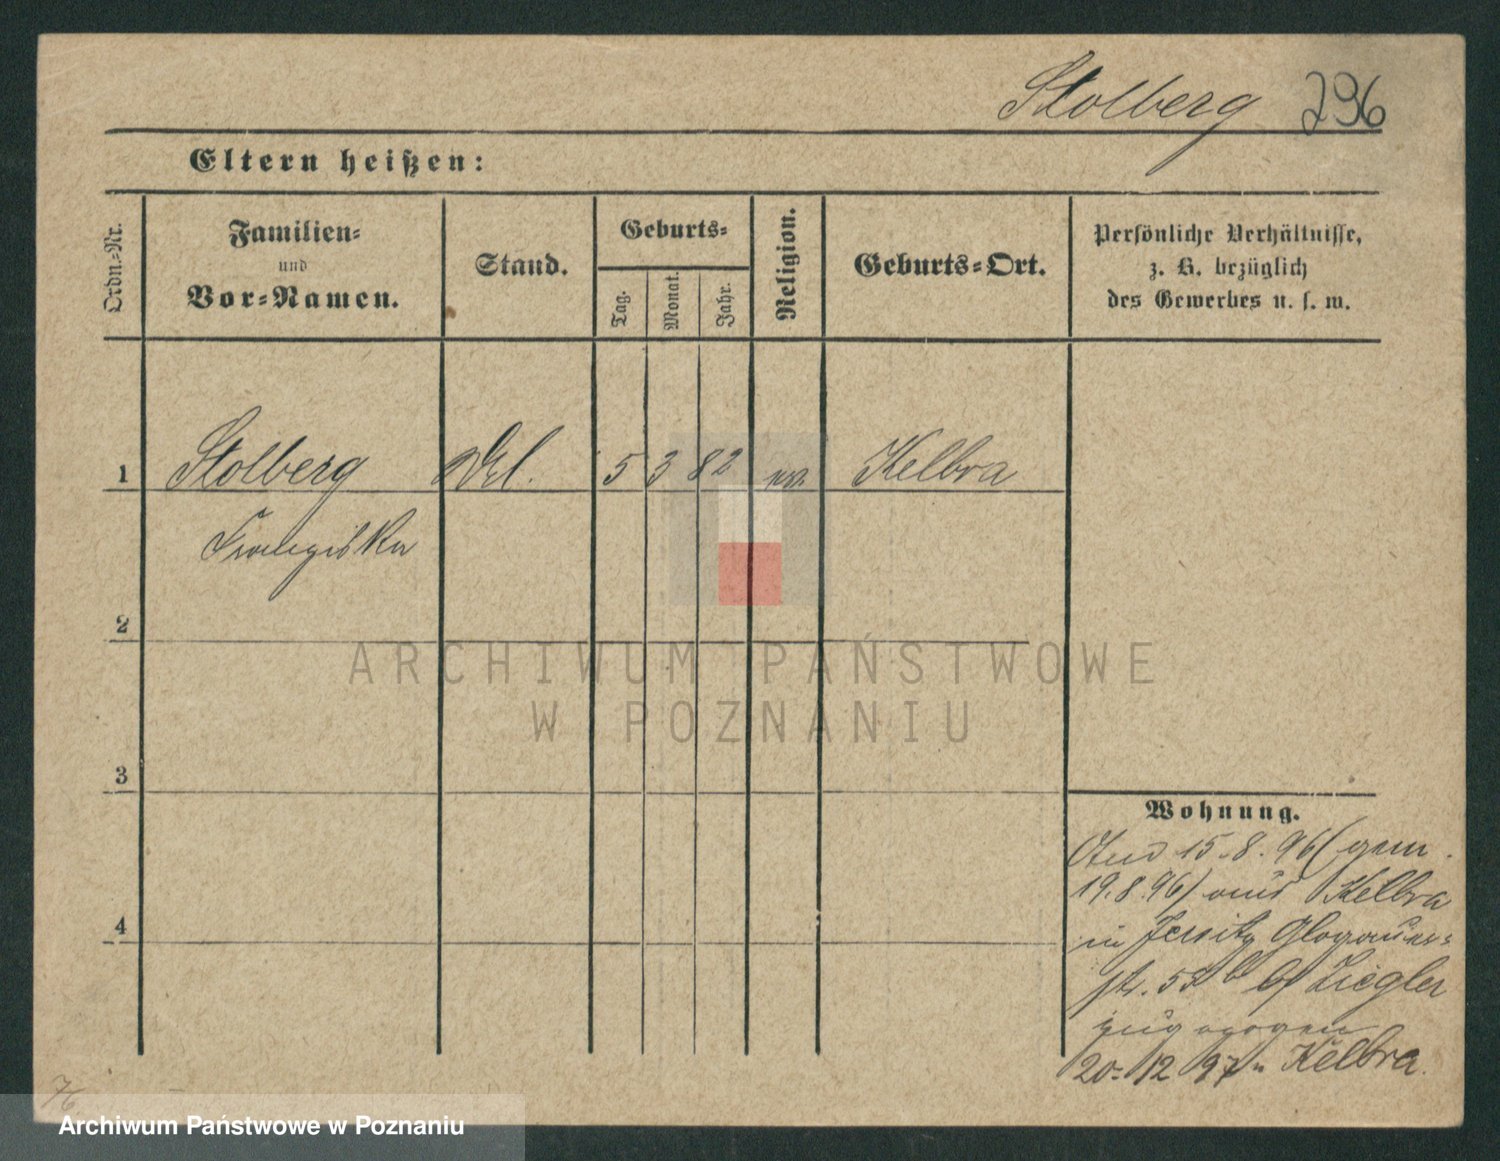 Stolberg 296
Eltern heißen:
Ordn.-Nr.
Familien-
und
Vor-Namen.
Stand.
Geburts-
Tag.
Monat.
Jahr.
Religion.
Geburts-Ort.
Persönliche Verhältnisse,
z. B. bezüglich
des Gewerbes u. s. w.
1 Stolberg 5 3 82 Kelbra
Franziska
2
ARCHIWUM PAŃSTWOWE
W POZNANIU
3
Wohnung.
15.8.96 (gem.
19.8.96) aus Kelbra
4
in Jersitz Glogauer-
str. 53 b b/ Ziegler
zugezogen
20.12.97 n Kelbra.
76
Archiwum Państwowe w Poznaniu